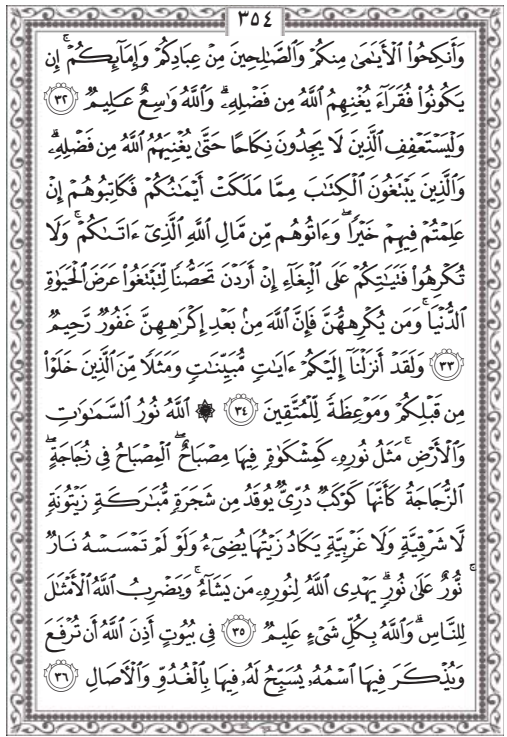 ٣٥٤
وَأَنكِحُواْ ٱلۡأَيَٰمَىٰ مِنكُمۡ وَٱلصَّٰلِحِينَ مِنۡ عِبَادِكُمۡ وَإِمَآئِكُمۡۚ إِن
يَكُونُواْ فُقَرَآءَ يُغۡنِهِمُ ٱللَّهُ مِن فَضۡلِهِۦۗ وَٱللَّهُ وَٰسِعٌ عَلِيمٞ ٣٢
وَلۡيَسۡتَعۡفِفِ ٱلَّذِينَ لَا يَجِدُونَ نِكَاحًا حَتَّىٰ يُغۡنِيَهُمُ ٱللَّهُ مِن فَضۡلِهِۦۗ
وَٱلَّذِينَ يَبۡتَغُونَ ٱلۡكِتَٰبَ مِمَّا مَلَكَتۡ أَيۡمَٰنُكُمۡ فَكَاتِبُوهُمۡ إِنۡ
عَلِمۡتُمۡ فِيهِمۡ خَيۡرٗاۖ وَءَاتُوهُم مِّن مَّالِ ٱللَّهِ ٱلَّذِيٓ ءَاتَىٰكُمۡۚ وَلَا
تُكۡرِهُواْ فَتَيَٰتِكُمۡ عَلَى ٱلۡبِغَآءِ إِنۡ أَرَدۡنَ تَحَصُّنٗا لِّتَبۡتَغُواْ عَرَضَ ٱلۡحَيَوٰةِ
ٱلدُّنۡيَاۚ وَمَن يُكۡرِههُّنَّ فَإِنَّ ٱللَّهَ مِنۢ بَعۡدِ إِكۡرَٰهِهِنَّ غَفُورٞ رَّحِيمٞ
٣٣ وَلَقَدۡ أَنزَلۡنَآ إِلَيۡكُمۡ ءَايَٰتٖ مُّبَيِّنَٰتٖ وَمَثَلٗا مِّنَ ٱلَّذِينَ خَلَوۡاْ
مِن قَبۡلِكُمۡ وَمَوۡعِظَةٗ لِّلۡمُتَّقِينَ ٣٤ ۞ ٱللَّهُ نُورُ ٱلسَّمَٰوَٰتِ
وَٱلۡأَرۡضِۚ مَثَلُ نُورِهِۦ كَمِشۡكَوٰةٖ فِيهَا مِصۡبَاحٌۖ ٱلۡمِصۡبَاحُ فِي زُجَاجَةٍۖ
ٱلزُّجَاجَةُ كَأَنَّهَا كَوۡكَبٞ دُرِّيّٞ يُوقَدُ مِن شَجَرَةٖ مُّبَٰرَكَةٖ زَيۡتُونَةٖ
لَّا شَرۡقِيَّةٖ وَلَا غَرۡبِيَّةٖ يَكَادُ زَيۡتُهَا يُضِيٓءُ وَلَوۡ لَمۡ تَمۡسَسۡهُ نَارٞۚ
نُّورٌ عَلَىٰ نُورٖۚ يَهۡدِي ٱللَّهُ لِنُورِهِۦ مَن يَشَآءُۚ وَيَضۡرِبُ ٱللَّهُ ٱلۡأَمۡثَٰلَ
لِلنَّاسِۗ وَٱللَّهُ بِكُلِّ شَيۡءٍ عَلِيمٞ ٣٥ فِي بُيُوتٍ أَذِنَ ٱللَّهُ أَن تُرۡفَعَ
وَيُذۡكَرَ فِيهَا ٱسۡمُهُۥ يُسَبِّحُ لَهُۥ فِيهَا بِٱلۡغُدُوِّ وَٱلۡأٓصَالِ ٣٦